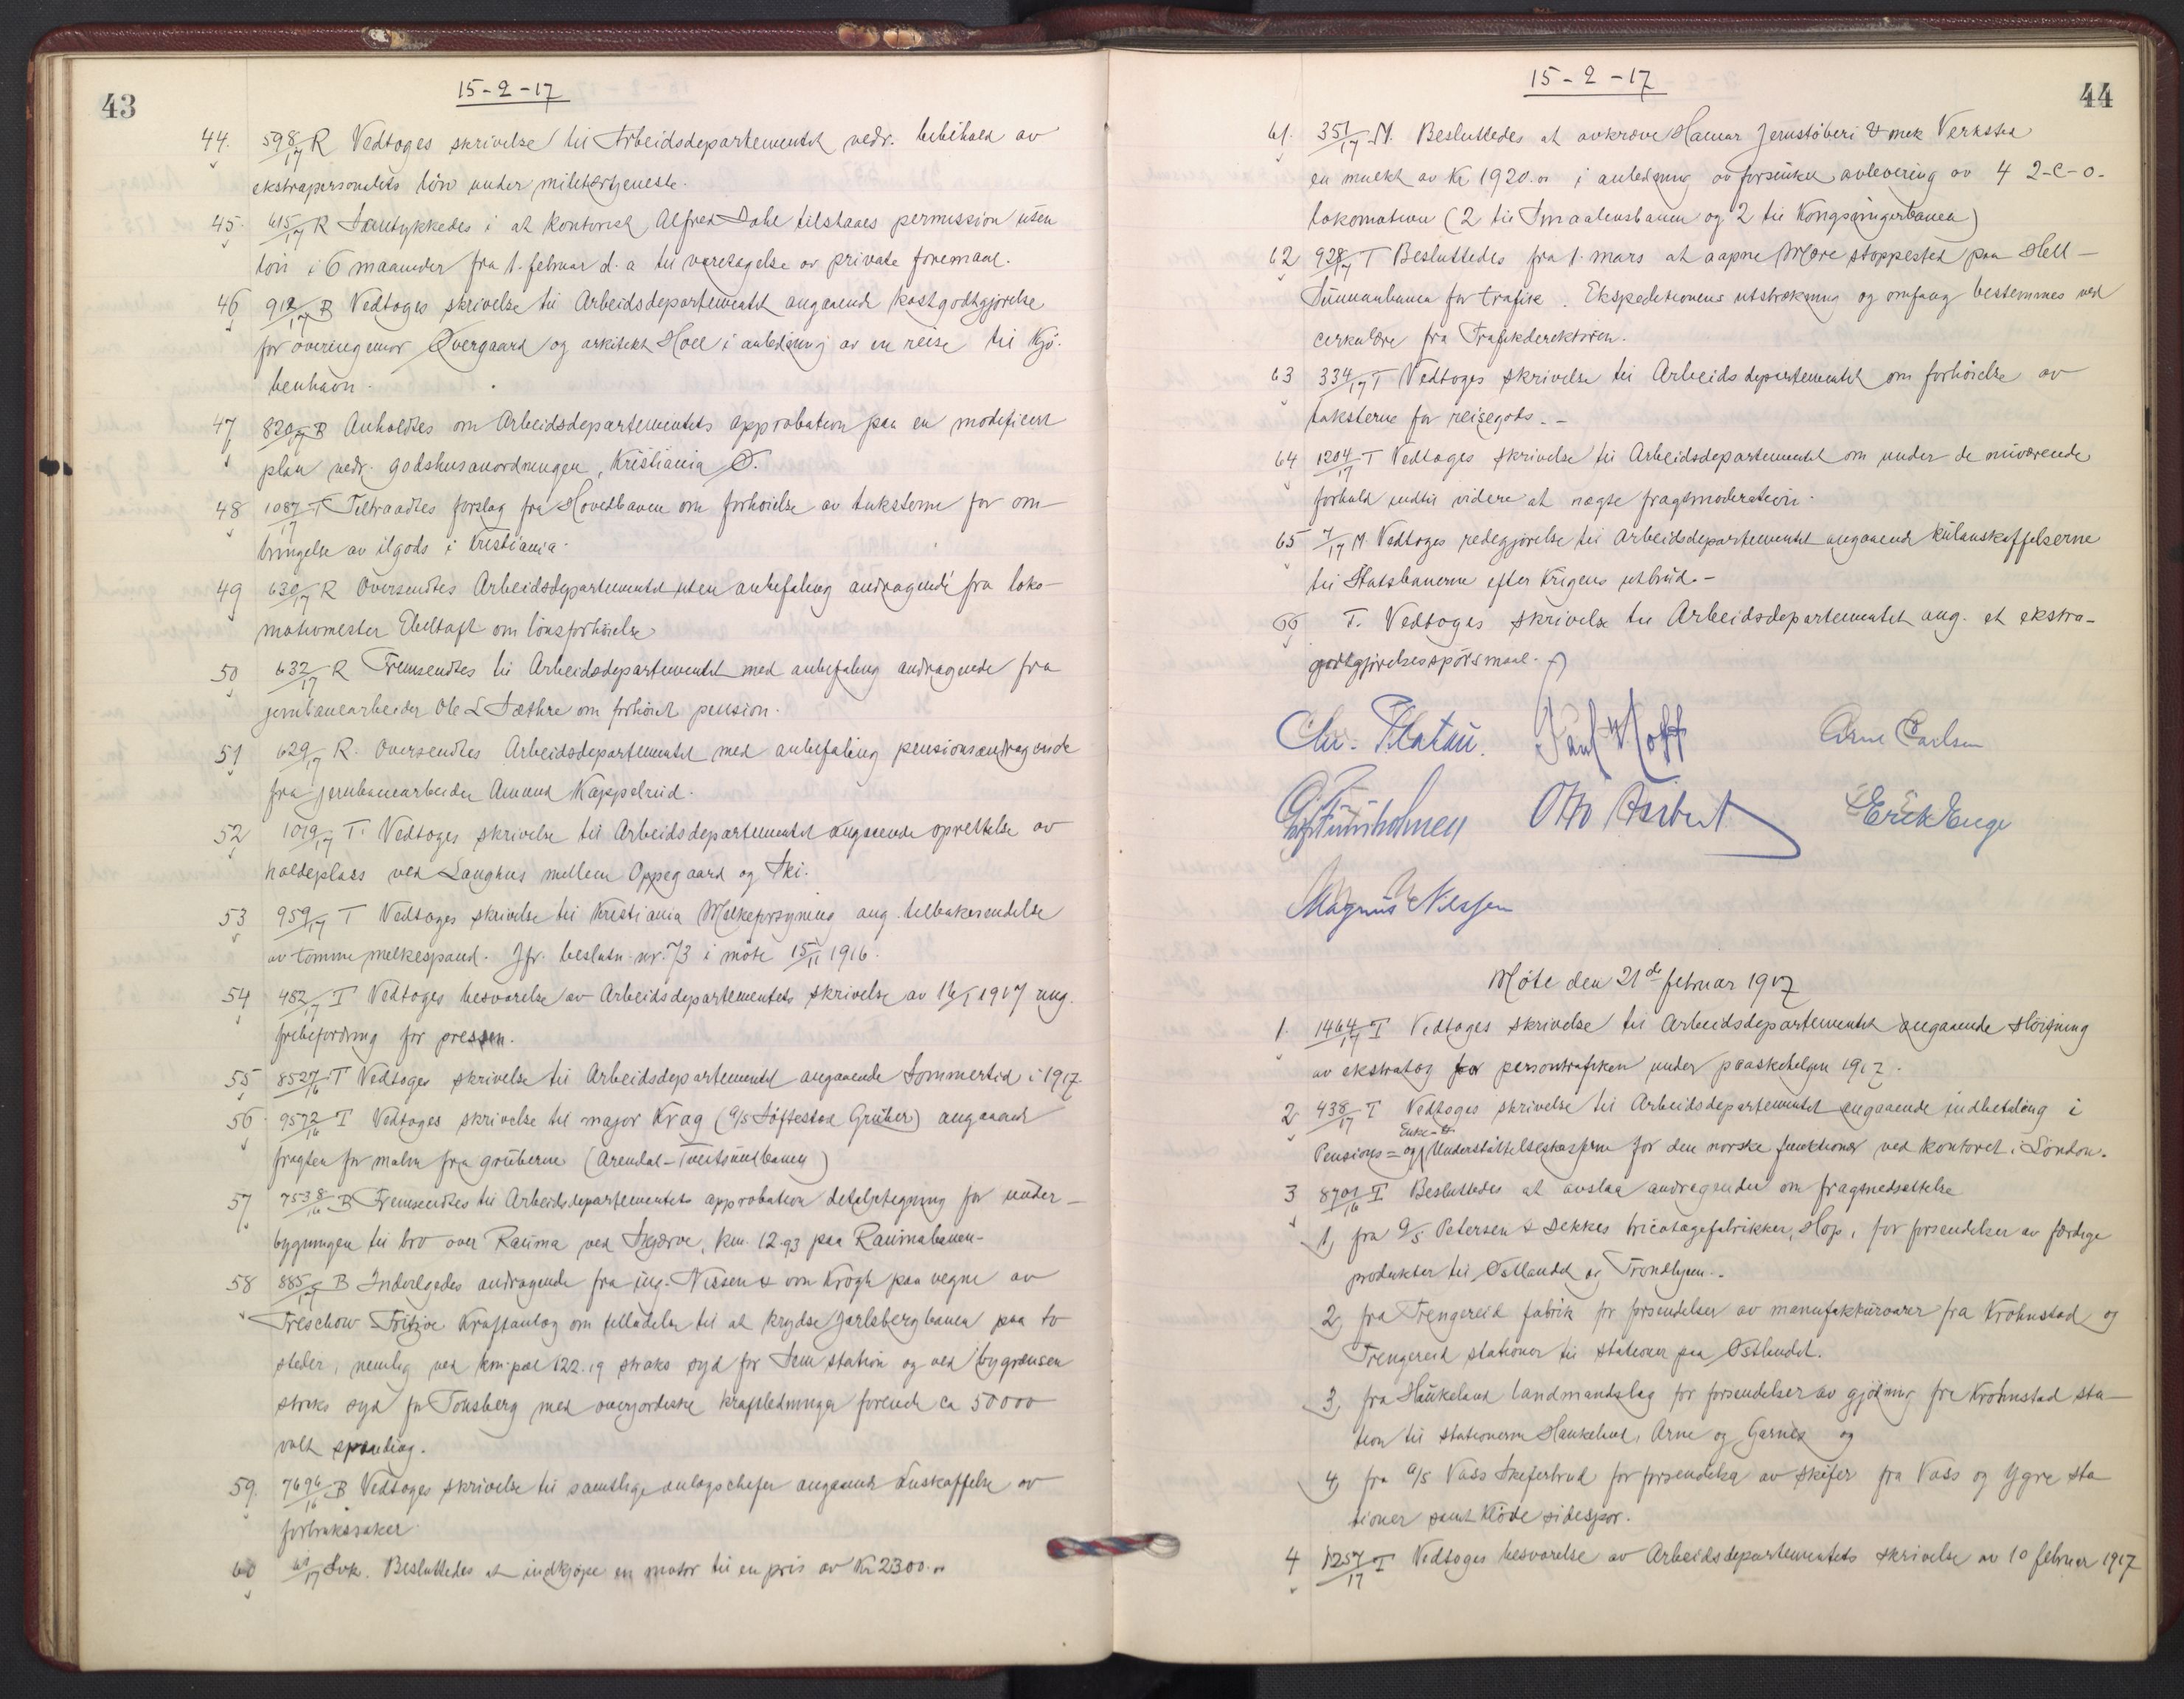 43
15-2-17
44. 598/17 R Vedtoges skrivelse til Arbeidsdepartementet vedr. bibehold av
ekstrapersonalets lön under militærtjeneste.
45. 615/17 R Samtykkedes i at kontorist Alfred Dahl tilstaaes permission uten
lön i 6 maaneder fra 1. februar d. a til varetagelse av private foremaal.
46 912/17 B Vedtoges skrivelse til Arbeidsdepartementet angaaende kostgodtgjörelse
for overingeniör Övergaard og arkitekt Hoel i anledning av en reise til Kjö-
benhavn.
47 820/17 B Anholdtes om Arbeidsdepartementets approbation paa en modificert
plan vedr. godshusanordningen, Kristiania Ö.
48 1087/17 T Tiltraadtes forslag fra Hovedbanen om forhöielse av taksterne for om-
bringelse av ilgods i Kristiania.
49 630/17 R Oversendtes Arbeidsdepartementet uten anbefaling andragende fra loko-
motivmester Ebeltoft om lönsforhöielse
50 632/17 R Fremsendtes til Arbeidsdepartementet med anbefaling andragende fra
jernbanearbeider Ole L Sæthre om forhöiet pension.
51 629/17 R. Oversendtes Arbeidsdepartementet med anbefaling pensionsandragende
fra jernbanearbeider Amund Kappelrud.
52 1019/17 T. Vedtoges skrivelse til Arbeidsdepartementet angaaende oprettelse av
holdeplads ved Langhus mellem Oppegaard og Ski.
53 959/17 T Vedtoges skrivelse til Kristiania Melkeforsyning ang. tilbakesendelse
av tomme melkespand. Jfr. beslutn. nr. 73 i möte 15/11 1916.
54 452/17 T Vedtoges besvarelse av Arbeidsdepartementets skrivelse av 16/1 1917 ang.
fribefordring for pressen.
55 8527/16 T Vedtoges skrivelse til Arbeidsdepartementet angaaende Sommertid i 1917.
56 9572/16 T Vedtoges skrivelse til major Krag (A/S Söftestad Gruber) angaaende
fragten for malm fra gruberne (Arendal-Tveitsundbanen)
57 7538/16 B Fremsendtes til Arbeidsdepartementets approbation detaljtegning for under-
bygningen til bro over Rauma ved Skjærve, km. 12.93 paa Raumabanen-
58 885/17 B Indvilgedes andragende fra ing. Nissen & von Krogh paa vegne av
Treschow Fritzöe Kraftanlæg om tilladelse til at krydse Jarlsbergbanen paa to
steder, nemlig ved km-pæl 122.19 straks syd for Sem station og ved bygrænsen
straks syd for Tönsberg med overjordiske kraftledninger förende ca 50000
volt spænding.
59. 7696/16 B Vedtoges skrivelse til samtlige anlægschefer angaaende anskaffelse av
forbrukssaker
60 61/17 Svk. Besluttedes at indkjöpe en motor til en pris av Kr 2300.00
44
15-2-17
61. 351/17 M. Besluttedes at avkræve Hamar Jernstöberi & mek Verksted
en mulkt av Kr 1920.00 i anledning av forsinket avlevering av 4 2-C-0-
lokomotiver (2 til Smaalensbanen og 2 til Kongsvingerbanen)
62 928/17 T Besluttedes fra 1. mars at aapne Mære stoppested paa Hell-
Sunnanbanen for trafik. Ekspeditionens utstrækning og omfang bestemmes ved
cirkulære fra Trafikdirektören.
63 334/17 T Vedtoges skrivelse til Arbeidsdepartementet om forhöielse av
taksterne for reisegods. -
64 1204/17 T Vedtoges skrivelse til Arbeidsdepartementet om under de nuværende
forhold indtil videre at nægte fragtmoderation.
65 7/17 M. Vedtoges redegjörelse til Arbeidsdepartementet angaaende kulanskaffelserne
til Statsbanerne efter krigens utbrud. -
66 T. Vedtoges skrivelse til Arbeidsdepartementet ang. et ekstra-
godtgjörelsesspörsmaal.
Chr. Platou. Paul Hoff Arne Carlsen
Furuholmen Otto Aubert Erik Enge
Magnus Nilssen
Möte den 21de februar 1917
1. 1464/17 T Vedtoges skrivelse til Arbeidsdepartementet angaaende slöifning
av ekstratog for persontrafiken under paaskehelgen 1917.
2 438/17 T Vedtoges skrivelse til Arbeidsdepartementet angaaende indbetaling i
Enke-&
Pensions= og Understöttelseskasserne for den norske funktionær ved kontoret i London.
3 8701/16 T Besluttedes at avslaa andragender om fragtnedsættelse
1, fra A/S Petersen & Dekkes tricotagefabrikker, Hop, for forsendelser av færdige
produkter til Östlandet og Trondhjem.
2, fra Trengereid fabrik for forsendelser av manufakturvarer fra Krohnstad og
Trengereid stationer til stationer paa Östlandet.
3, fra Haukeland landmandslag for forsendelser av gjödning fra Krohnstad sta-
tion til stationerne Haukeland, Arne og Garnes og
4, fra A/S Voss Skiferbrud for forsendelse av skifer fra Voss og Ygre sta
tioner samt Klöve sidespor.
4 1257/17 T Vedtoges besvarelse av Arbeidsdepartementets skrivelse av 10 februar 1917